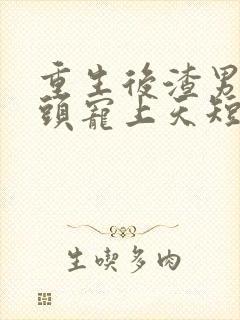 重生後渣男
頭寵上天短
生喫多肉